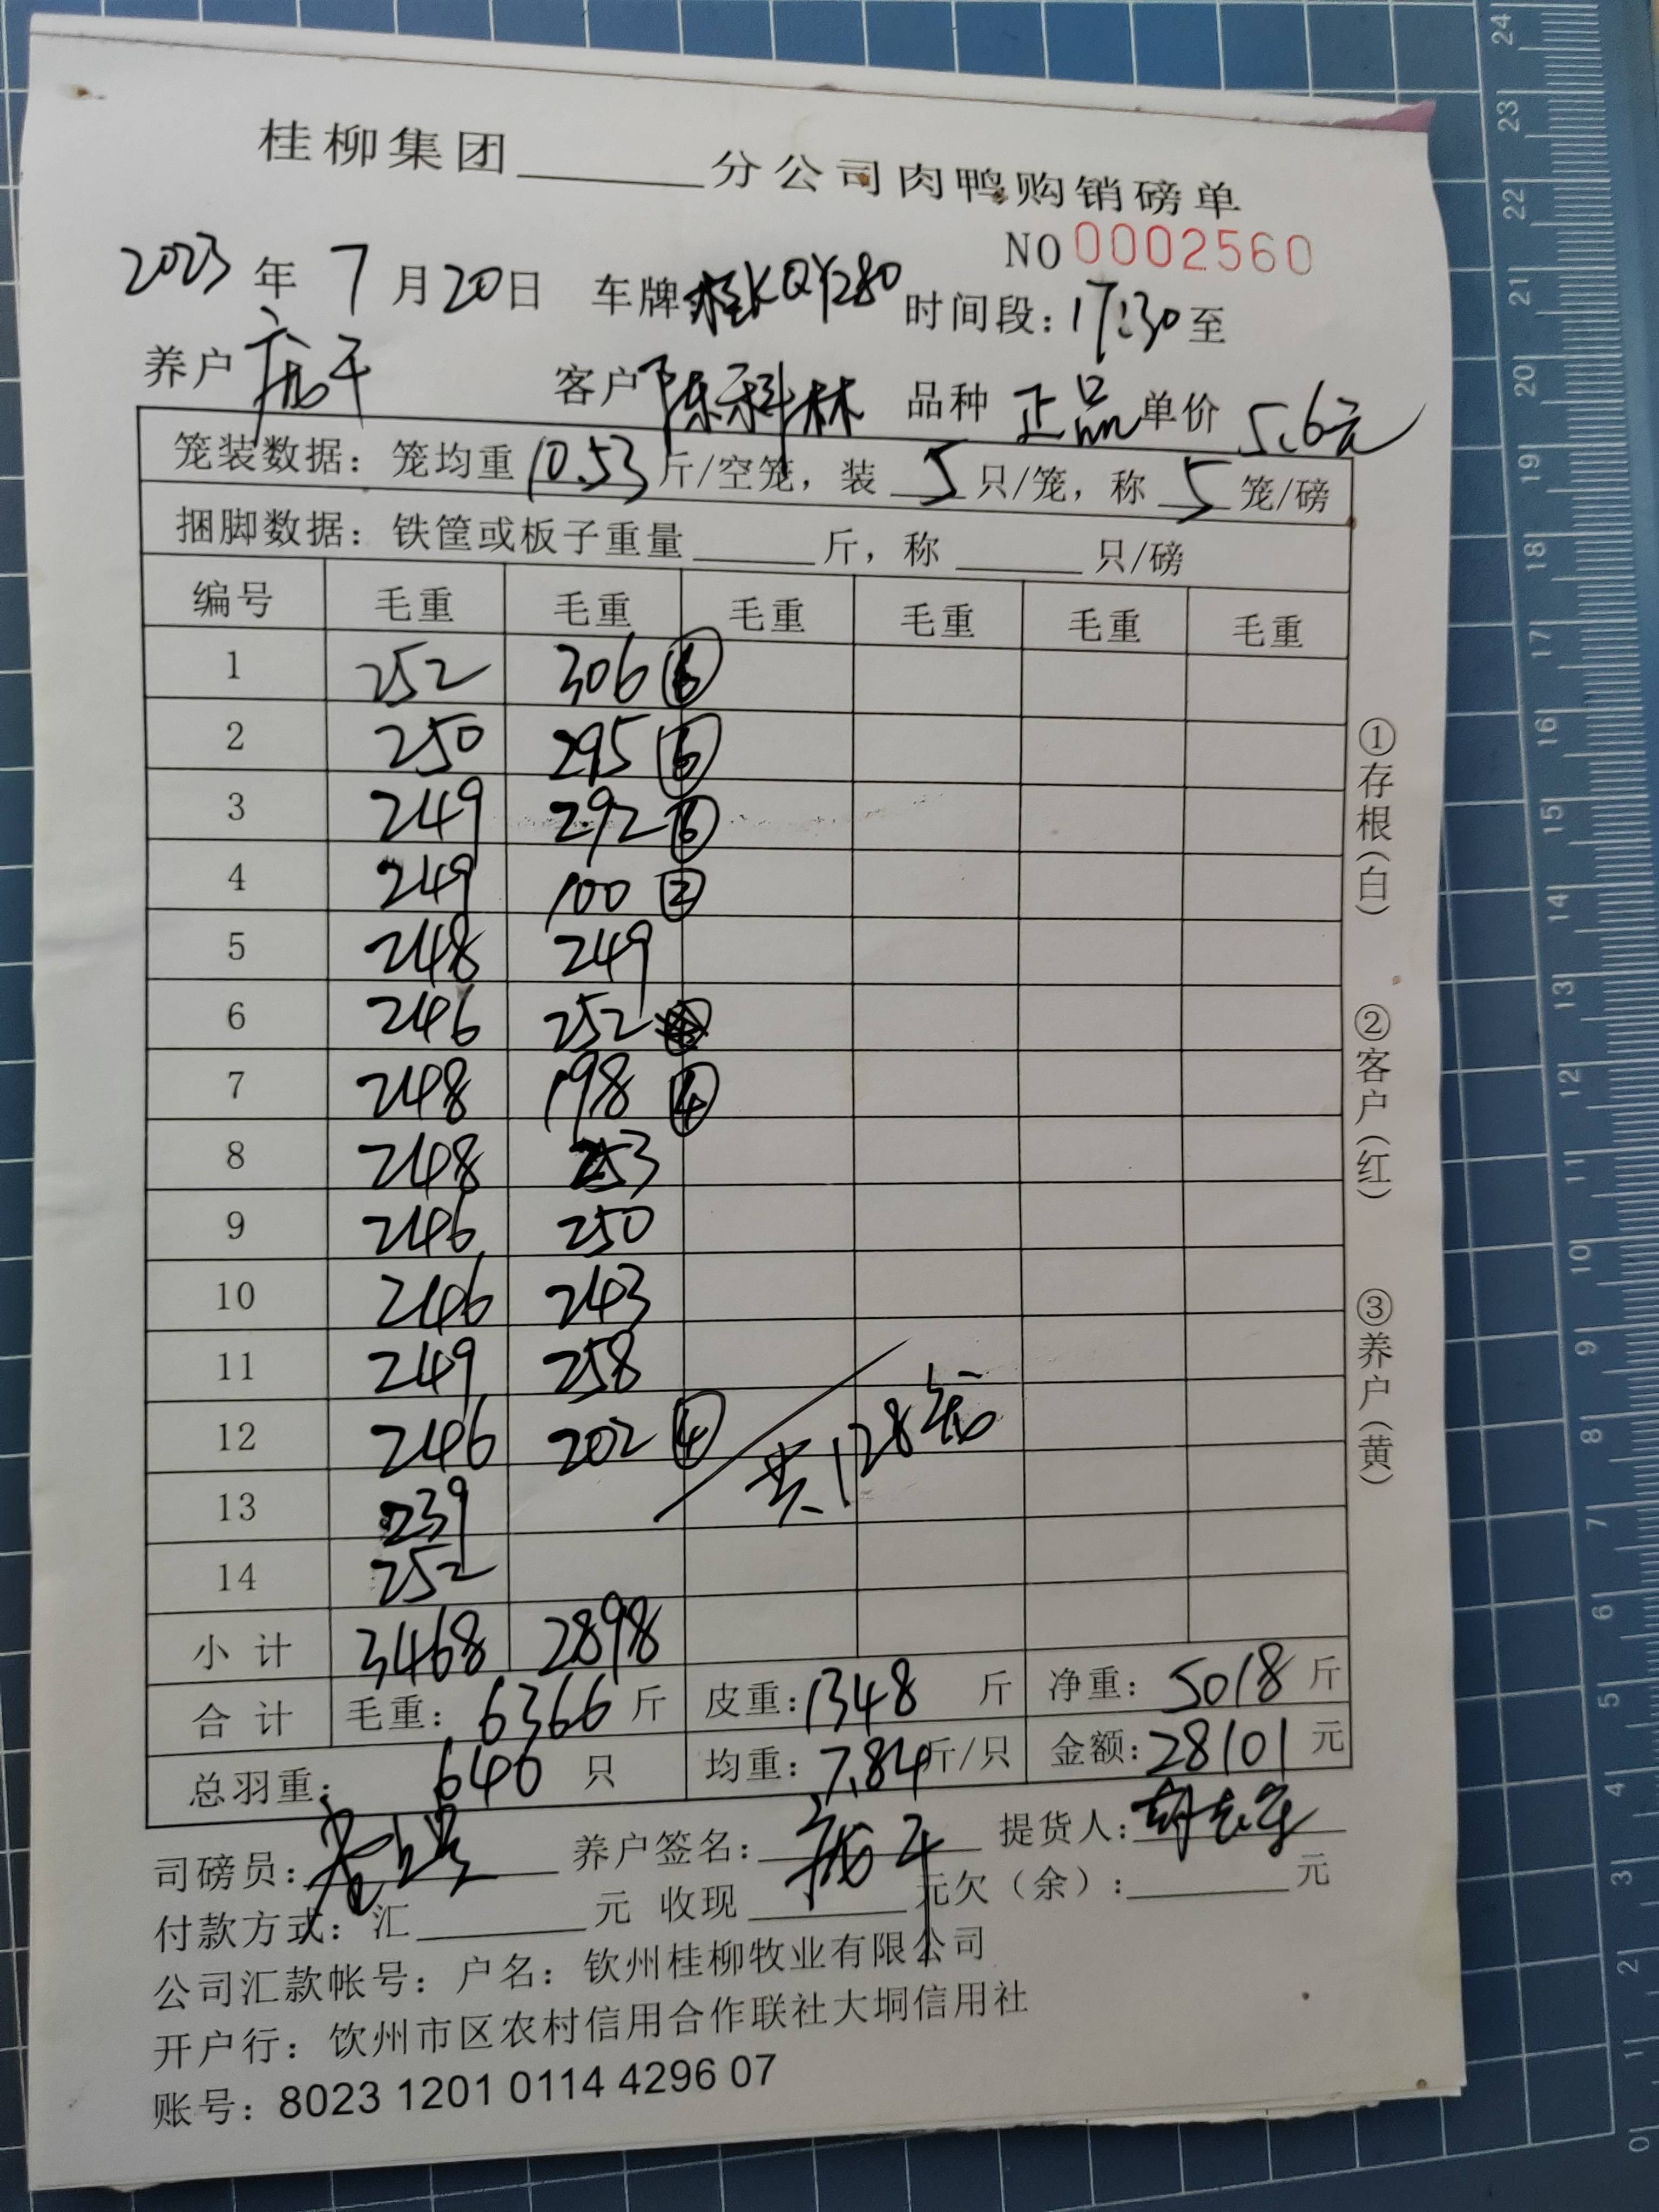 桂柳集团______分公司肉鸭购销磅单
NO 0002560
2023 年 7 月 20 日 车牌 桂KQY280 时间段：17:30 至
养户 客户 陈科林 品种 正品 单价 5.6元
笼装数据：笼均重 10.53 斤/空笼，装 5 只/笼，称 5 笼/磅
捆脚数据：铁筐或板子重量______斤，称______只/磅
编号 毛重 毛重 毛重 毛重 毛重 毛重
1 252 306 ⑥
2 250 295 ⑥
3 249 292 ⑥
4 249 100 ②
5 248 249
6 246 252
7 248 198 ④
8 248 253
9 246 250
10 246 243
11 249 258
12 246 202 ④
共128笼
13 239
14 252
小计 3468 2898
合计 毛重：6366 斤 皮重：1348 斤 净重：5018 斤
总羽重：640 只 均重：7.84 斤/只 金额：28101 元
司磅员： 养户签名： 提货人：
付款方式：汇______元 收现______元欠（余）：______元
公司汇款帐号：户名：钦州桂柳牧业有限公司
开户行：钦州市区农村信用合作联社大垌信用社
账号：8023 1201 0114 4296 07
①存根（白） ②客户（红） ③养户（黄）
24
23
22
21
20
19
18
17
16
15
14
13
12
11
10
9
8
7
6
5
4
3
2
1
0